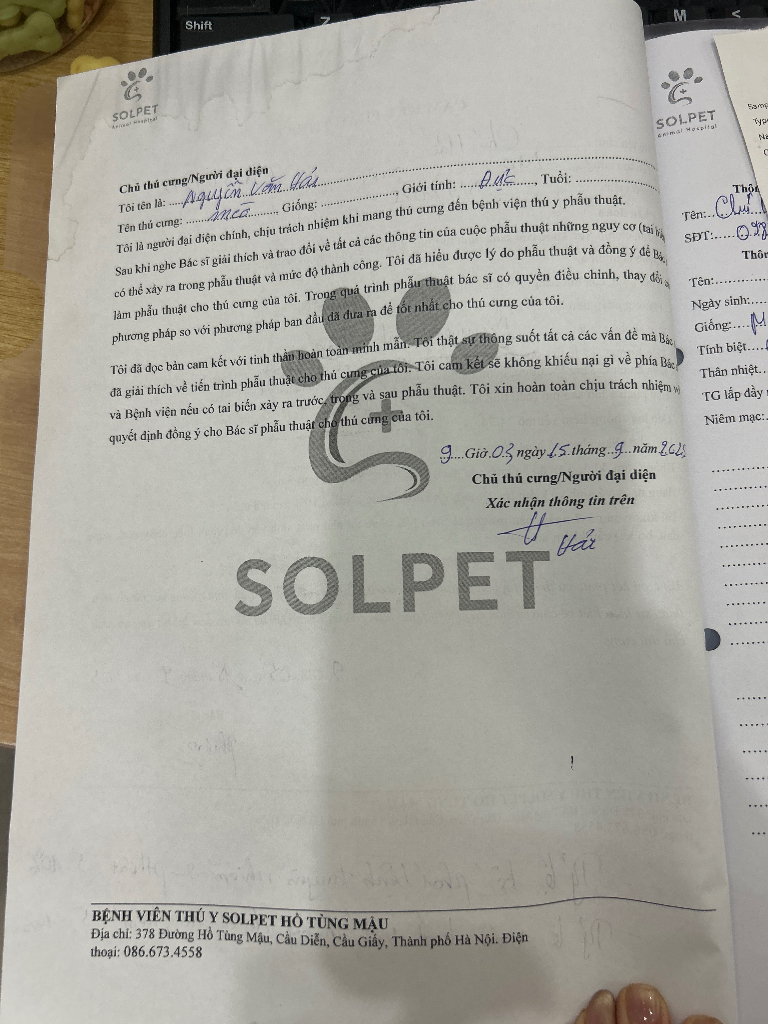 Shift
Z
M
<
SOLPET
Animal Hospital
Chủ thú cưng/Người đại diện
Tôi tên là: Nguyễn Văn Hải
Tên thú cưng: mèo, Giống: , Giới tính: Đực, Tuổi:
Tôi là người đại diện chính, chịu trách nhiệm khi mang thú cưng đến bệnh viện thú y phẫu thuật.
Sau khi nghe Bác sĩ giải thích và trao đổi về tất cả các thông tin của cuộc phẫu thuật những nguy cơ (tai
có thể xảy ra trong phẫu thuật và mức độ thành công. Tôi đã hiểu được lý do phẫu thuật và đồng ý để Bác
làm phẫu thuật cho thú cưng của tôi. Trong quá trình phẫu thuật bác sĩ có quyền điều chỉnh, thay đổi
phương pháp so với phương pháp ban đầu đã đưa ra để tốt nhất cho thú cưng của tôi.
Tôi đã đọc bản cam kết với tinh thần hoàn toàn minh mẫn. Tôi thật sự thông suốt tất cả các vấn đề mà Bác
đã giải thích về tiến trình phẫu thuật cho thú cưng của tôi. Tôi cam kết sẽ không khiếu nại gì về phía Bác
và Bệnh viện nếu có tai biến xảy ra trước, trong và sau phẫu thuật. Tôi xin hoàn toàn chịu trách nhiệm
quyết định đồng ý cho Bác sĩ phẫu thuật cho thú cưng của tôi.
9 Giờ 03 ngày 15 tháng 9 năm
Chủ thú cưng/Người đại diện
Xác nhận thông tin trên
Hải
SOLPET
BỆNH VIỆN THÚ Y SOLPET HỒ TÙNG MẬU
Địa chỉ: 378 Đường Hồ Tùng Mậu, Cầu Diễn, Cầu Giấy, Thành phố Hà Nội. Điện
thoại: 086.673.4558
SOLPET
Animal Hospital
Tên:
SĐT:
Tên:
Ngày sinh:
Giống: M
Tính biệt
Thân nhiệt
TG lấp đầy
Niêm mạc: